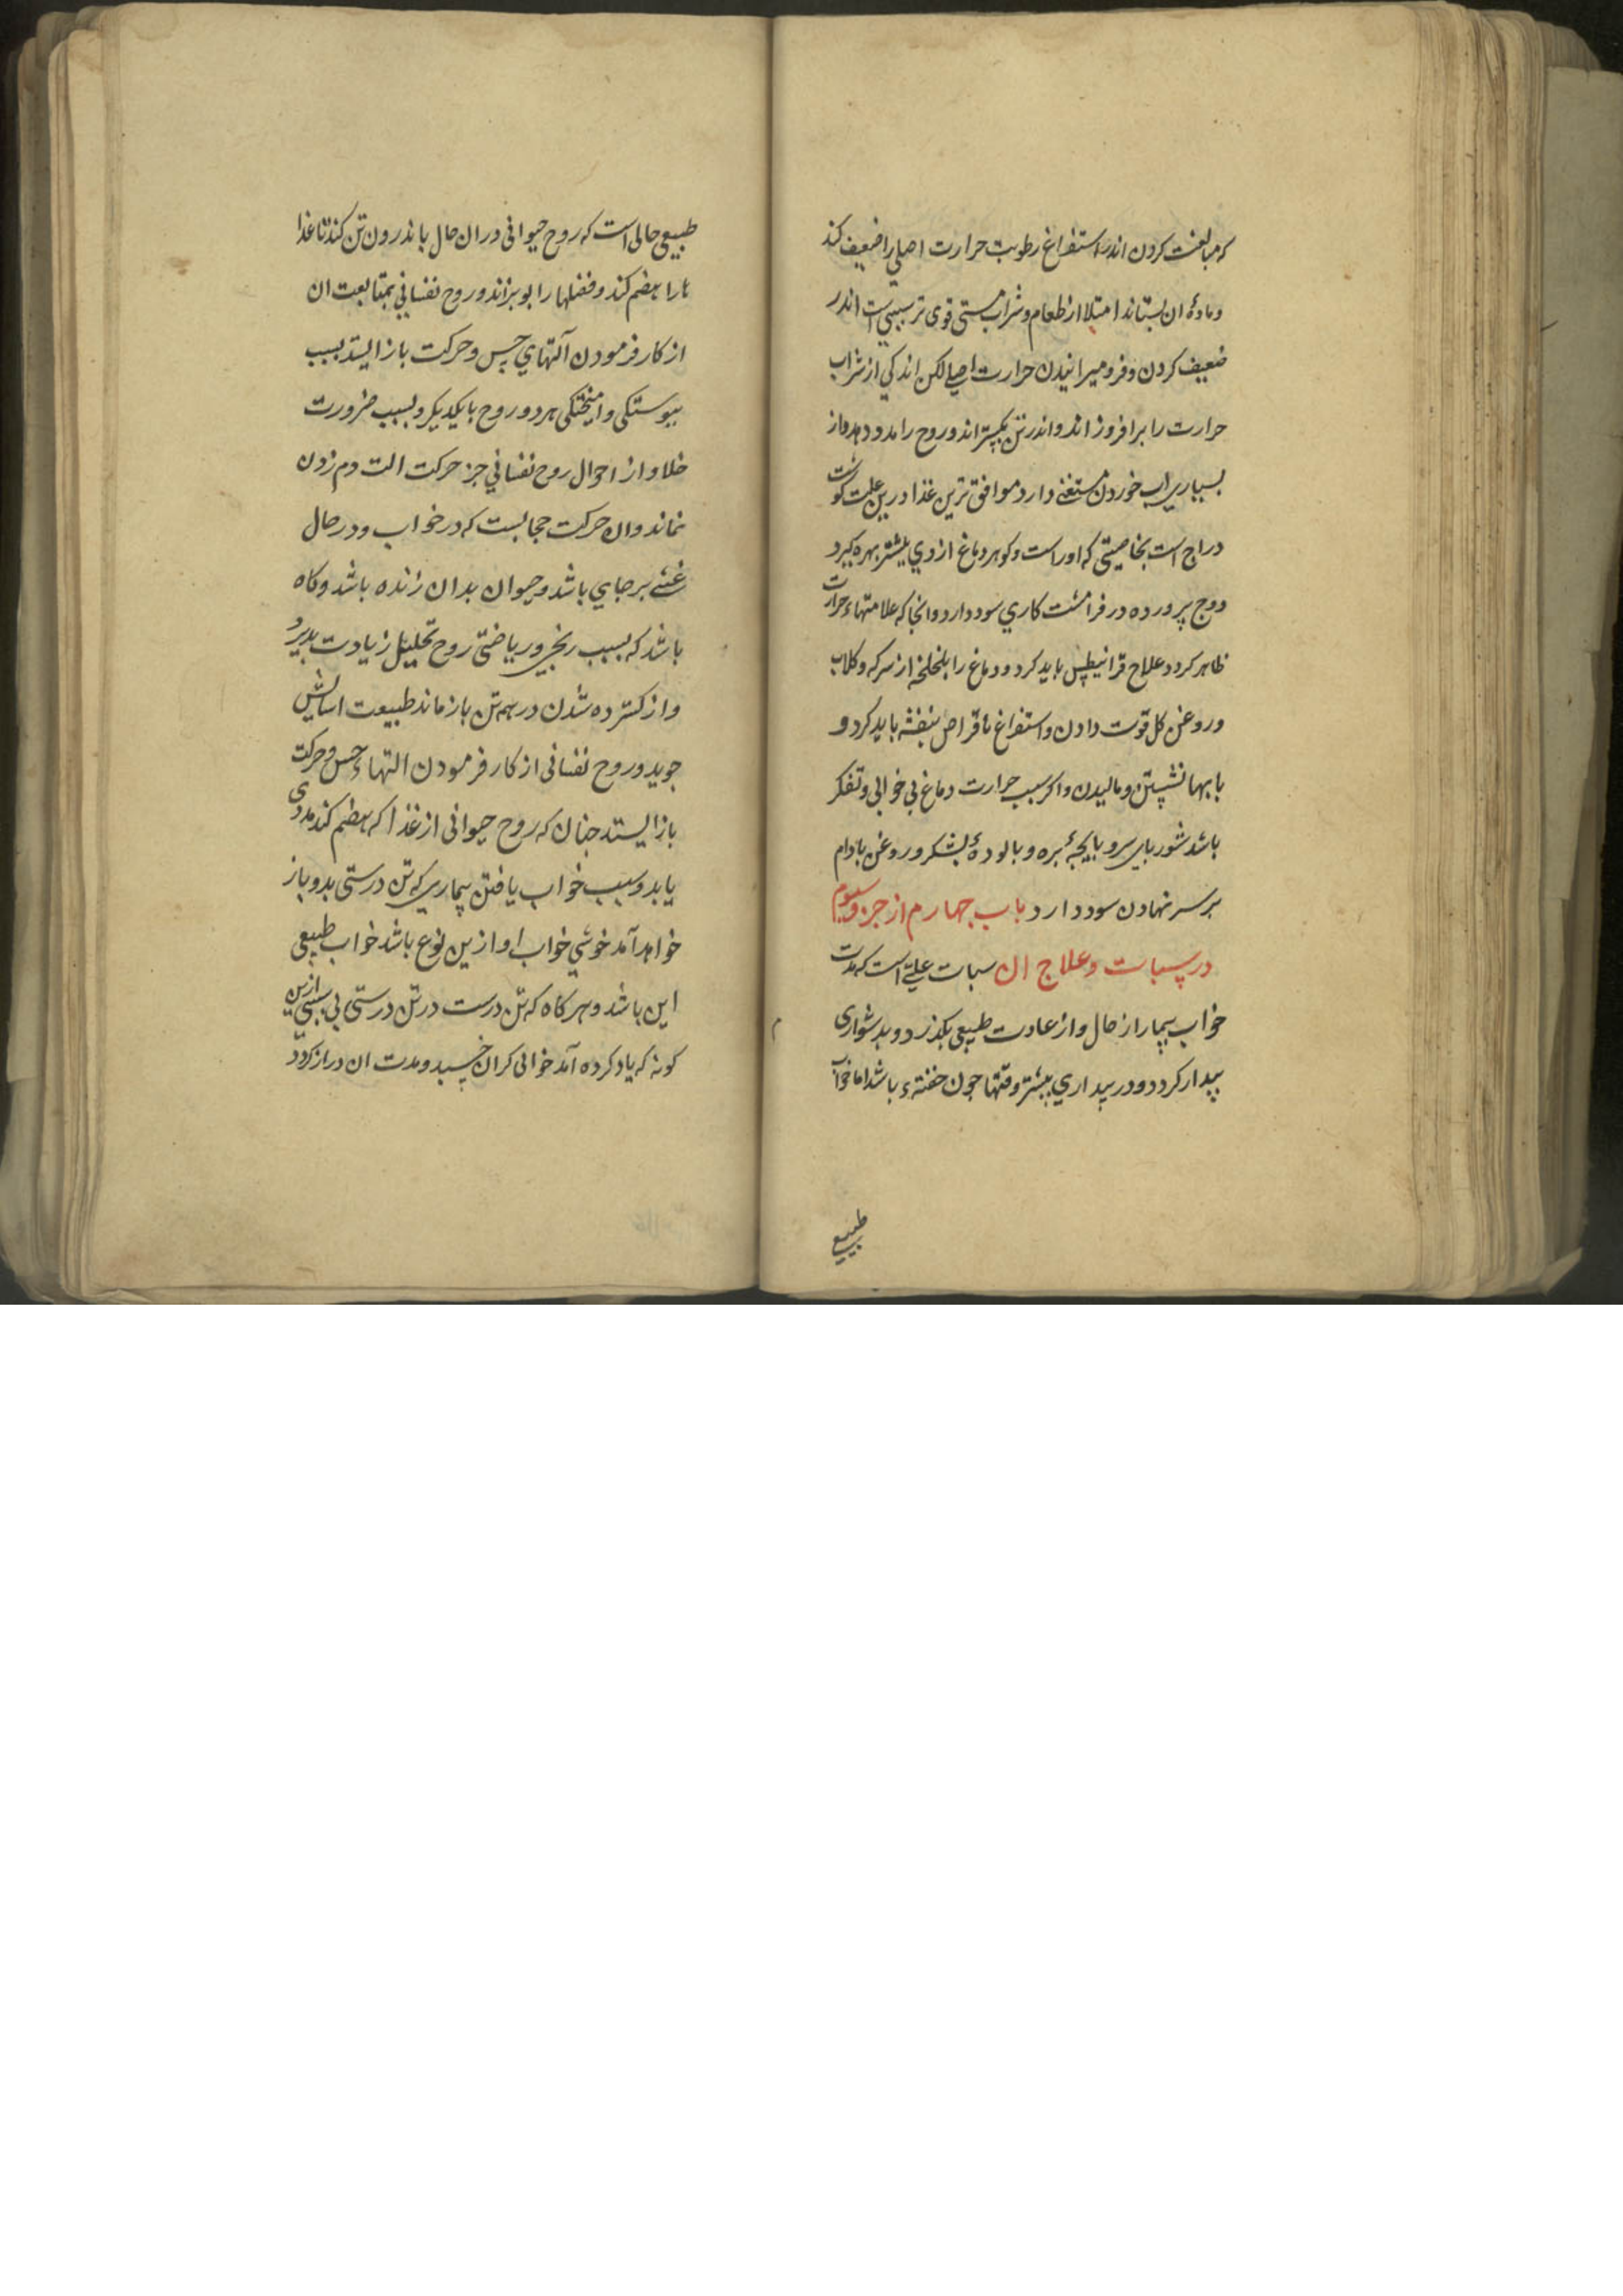 که مبالغت کردن اندر استفراغ رطوبت حرارت اصلی را ضعیف کند
و مادهٔ ان بستاند امتلا از طعام و شراب مستی قوی تر سببی است اندر
ضعیف کردن و فرو میرانیدن حرارت اصلی لکن اندکی از شراب
حرارت را برافروزاند و اندر تن بکستراند و روح را مدد دهد و از
بسیاری اب خوردن مستغنی دارد موافق ترین غذا درین علت کوشت
دراج است بخاصیتی که اوراست و کوهر دماغ از وی بیشتر بهره کیرد
ووج پرورده در فرامشت کاری سود دارد وانجا که علامتهاء حرارت
ظاهر کردد علاج قرانیطس باید کرد و دماغ را بلخلخه از سرکه و کلاب
و روغن کل قوت دادن و استفراغ باقراص بنفشه باید کرد و
بابها نشستن و مالیدن واکر سبب حرارت دماغ بی خوابی و تفکر
باشد شوربای سر و بایجهٔ بره و بالودهٔ بشکر و روغن بادام
بر سر نهادن سود دارد باب چهارم از جزو سیوم
در سبات و علاج ان سبات علتی است که مدت
خواب بیمار از حال و از عادت طبیعی بکذرد و بدشواری
بیدار کردد و در بیداری بیشتر وقتها جون خفتهء باشد اما خواب
طبیعی
طبیعی حالی است که روح حیوانی در ان حال باندرون تن کند تا غذا
را هضم کند و فضلها را بوبزاند و روح نفسانی بمتابعت ان
از کار فرمودن آلتهای حس و حرکت باز ایستد بسبب
بیوستکی و امیختکی هر دو روح با یکدیکر و بسبب ضرورت
خلا و از احوال روح نفسانی جز حرکت الت دم زدن
نماند وان حرکت حجابست که در خواب و در حال
غشی بر جای باشد و حیوان بدان زنده باشد و کاه
باشد که بسبب رنجی و ریاضتی روح تحلیل زیادت بدیرد
و از کسترده شدن در همه تن باز ماند طبیعت اسایش
جوید و روح نفسانی از کار فرمودن التهاء حس و حرکت
باز ایستد جنان که روح حیوانی از غذا که هضم کند مددی
یابد و سبب خواب یافتن بیماری که تن درستی بدو باز
خواهد آمد خوشی خواب او ازین نوع باشد خواب طبیعی
این باشد و هر کاه که تن درست در تن درستی بی سببی ازین
کونه که یاد کرده آمد خوابی کران خسبد و مدت ان دراز کردد